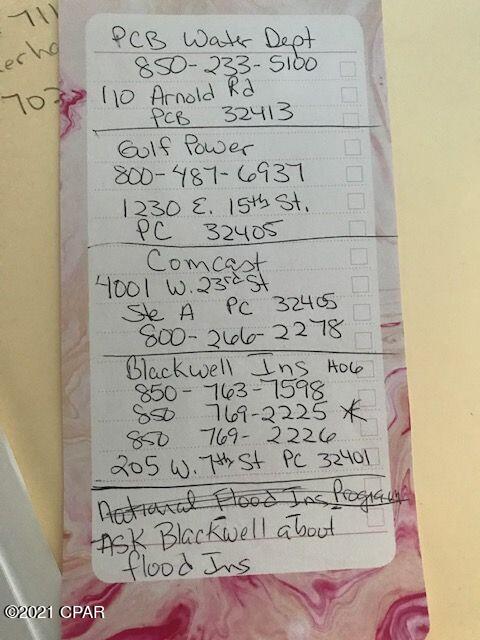 711
702
PCB Water Dept
850-233-5100
110 Arnold Rd
PCB 32413
Gulf Power
800-487-6937
1230 E. 15th St.
PC 32405
Comcast
4001 W. 23rd St
Ste A PC 32405
800-266-2278
Blackwell Ins HO6
850-763-7598
850 769-2225 *
850 769-2226
205 W. 7th St PC 32401
National Flood Ins Program
ASK Blackwell about
flood Ins
©2021 CPAR